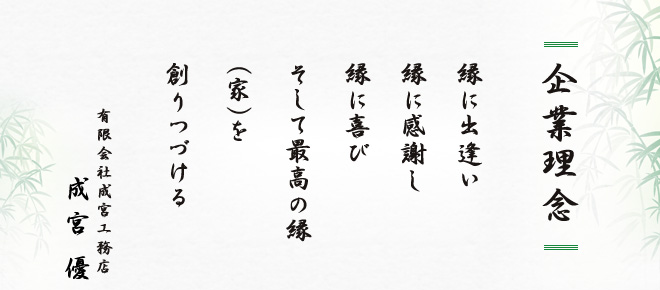 企業理念
縁に出逢い
縁に感謝し
縁に喜び
そして最高の縁
(家)を
創りつづける
有限会社成宮工務店
成宮 優